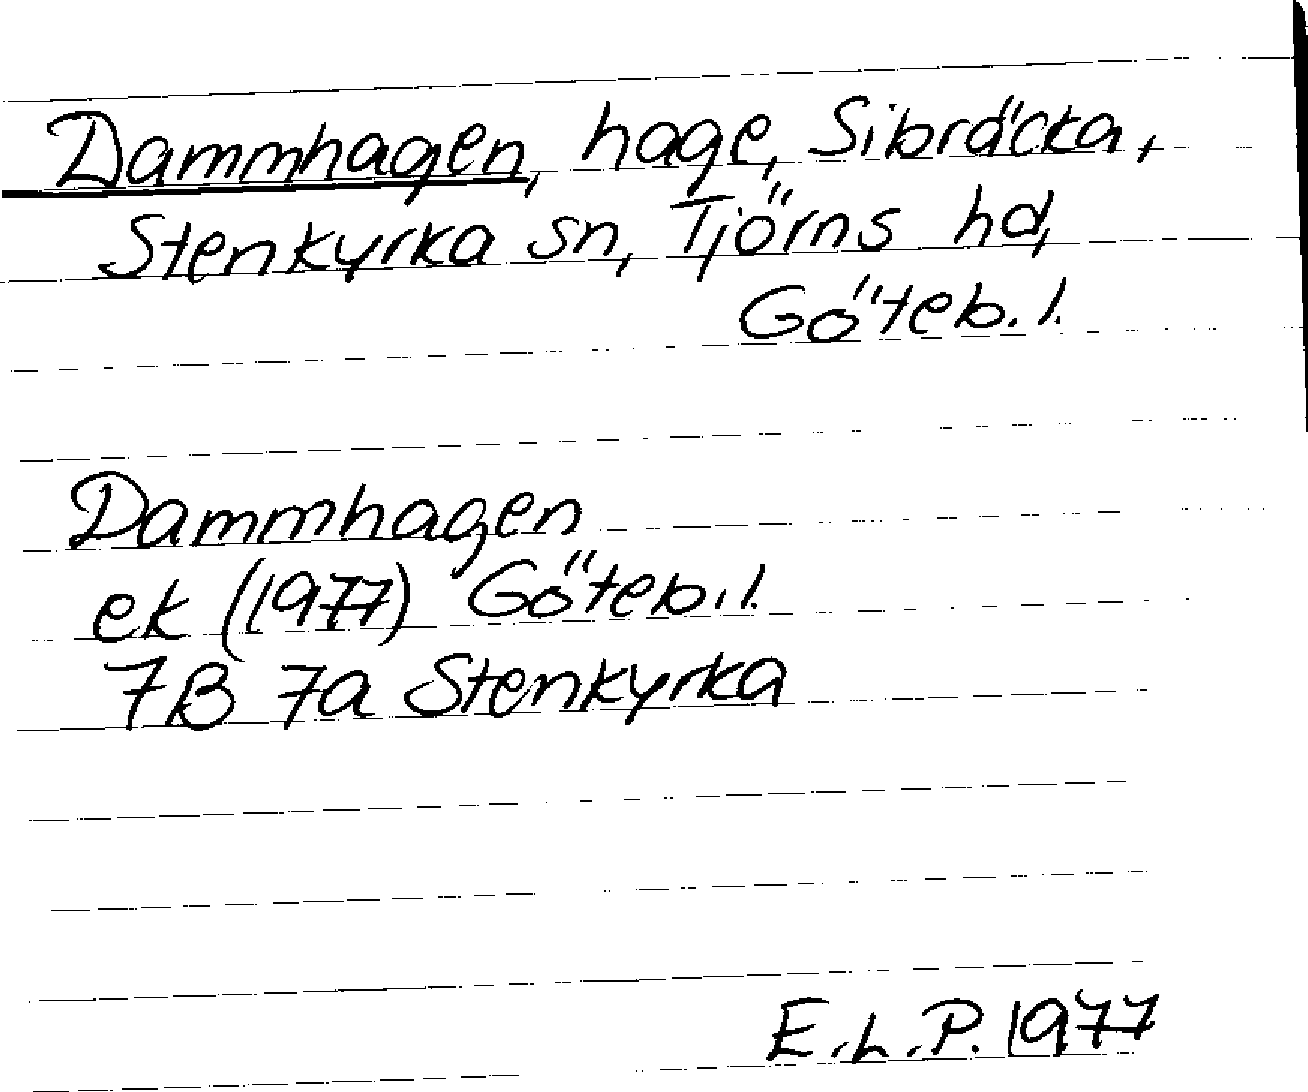 Dammhagen, hage, Sibräcka,
Stenkyrka sn, Tjörns hd,
Göteb. l.
Dammhagen
ek (1977) Göteb. l.
7B 7a Stenkyrka
E.L.P. 1977